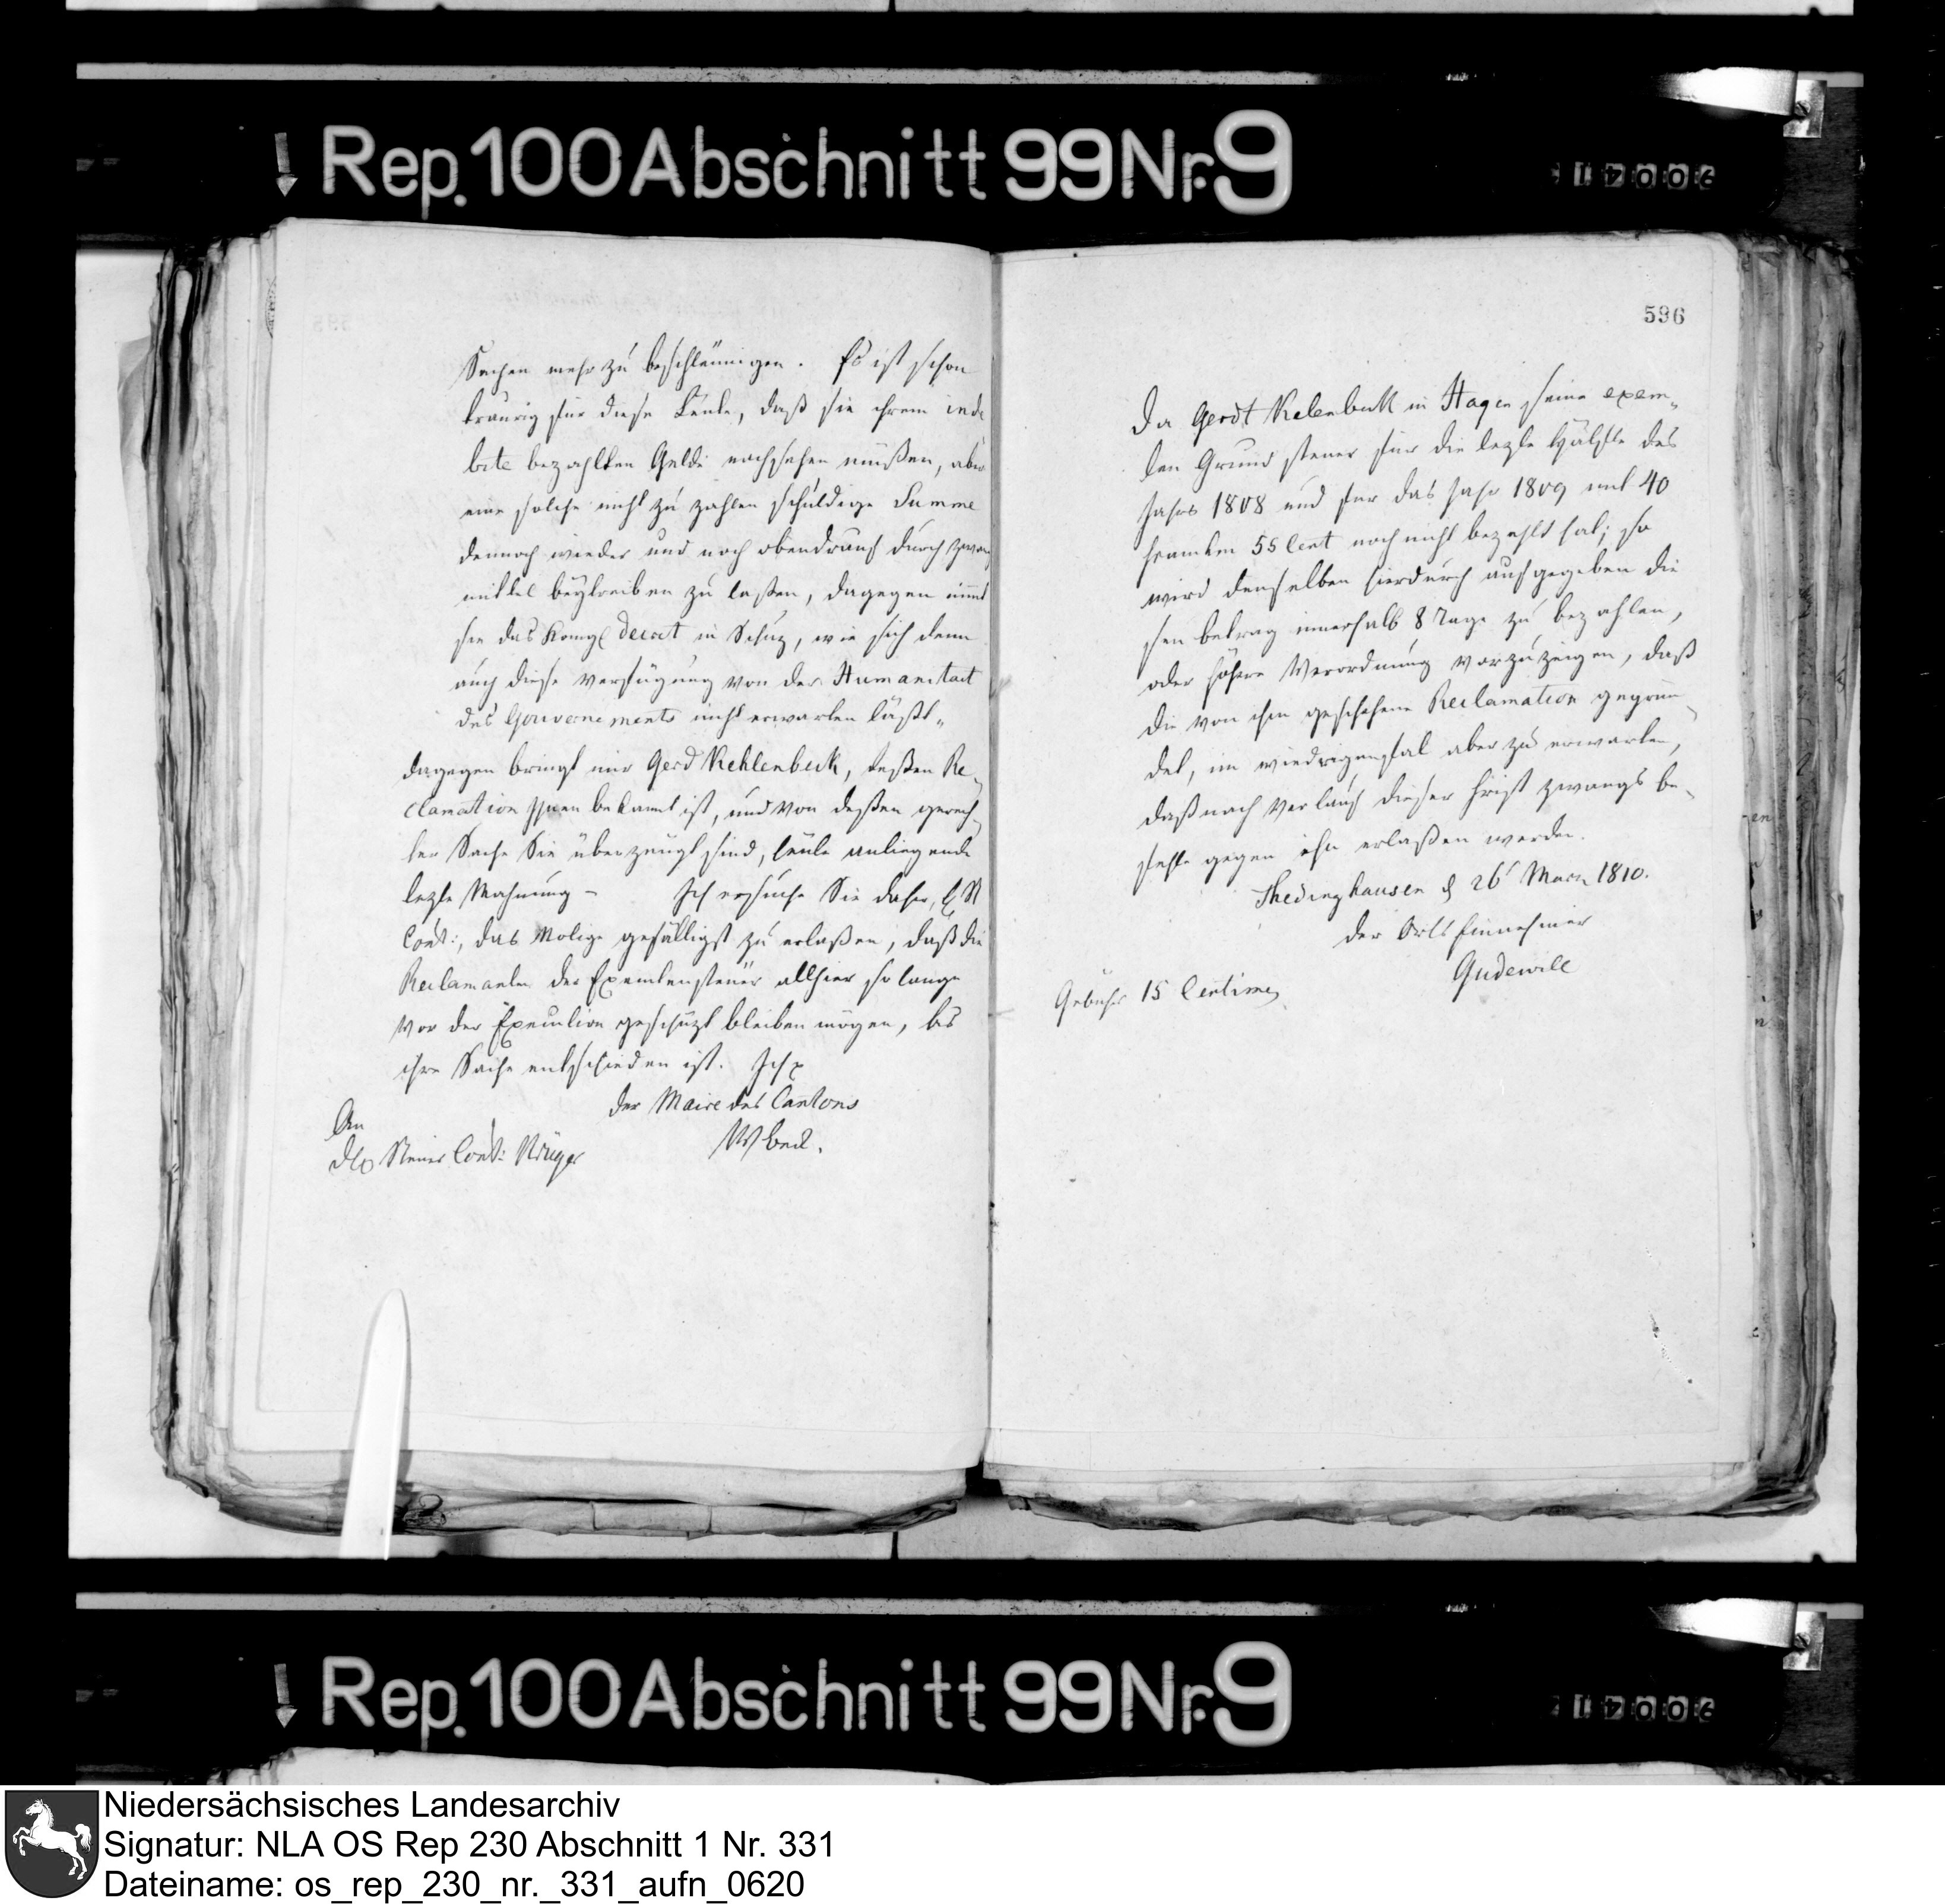 Rep. 100 Abschnitt 99 Nr. 9
Sachen mehr zu beschleunigen. Es ist schon
traurig für diese Leute, daß sie ihrem inde
bite bezahlten Gelde nachsehen müßen, aber
eine solche nicht zu zahlen schuldige Summe
dennoch wieder und noch obendrauf durch zwang
mittel beytreiben zu laßen, dagegen nimt
sie das Königl Decret in Schuz, wie sich denn
auch diese Verfügung von der Humanitaet
des Gouvernements nicht erwarten läßt„
dagegen bringt mir Gerd Kehlenbeck, deßen Re-
clamation Ihnen bekannt ist, und von deßen gerech-
ter Sache Sie überzeugt sind, heute anliegende
lezte Mahnung – Ich ersuche Sie daher,
Cont:, das Nötige gefälligst zu erlaßen, daß die
Reclamanten der Exemtensteuer allhier so lange
vor der Execution geschüzt bleiben mögen, bis
ihre Sache entschieden ist. Ich
der Maire des Cantons
An
Steuer Cont: Krüger
596
Da Gerdt Kelenbeck in Hagen seine exem„
ten Grund steuer für die lezte Hälfte des
Jahrs 1808 und für das Jahr 1809 mit 40
franken 55 Cent noch nicht bezahlt hat; so
wird demselben hierdurch aufgegeben die
sen betrag innerhalb 8 Tage zu bezahlen,
oder höhere Verordnung vorzuzeigen, daß
die von ihm geschehene Reclamation gegrün-
det, im wiedrigenfal aber zu erwarten,
daß nach Verlauf dieser frist zwangs be-
fehle gegen ihn erlaßen werden.
Thedinghausen d 26t Marz 1810.
der Orts Einnehmer
Gudewill
Gebühr 15 Centimes
Rep. 100 Abschnitt 99 Nr. 9
Niedersächsisches Landesarchiv
Signatur: NLA OS Rep 230 Abschnitt 1 Nr. 331
Dateiname: os_rep_230_nr._331_aufn_0620